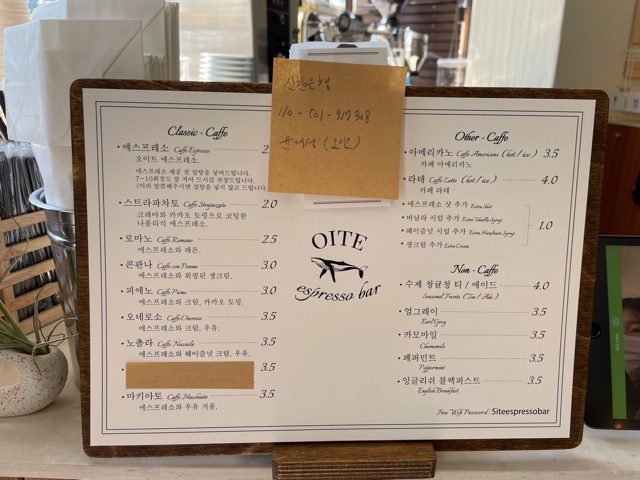 신한은행
110-501-917308
Classic - Caffe
에스프레소 Caffe Espresso 2
오이트 에스프레소.
에스프레소 제공 전 설탕을 넣어드립니다.
7~10회정도 잘 저어 드시길 권장드립니다.
(미리 말씀해주시면 설탕을 넣지 않고 드립니다.
스트라파차토 Caffe Strapazzato 2.0
크레마와 카카오 토핑으로 코팅한
나폴리식 에스프레소.
로마노 Caffe Romano 2.5
에스프레소와 레몬.
콘판나 Caffe con Panna 3.0
에스프레소와 휘핑된 생크림.
피에노 Caffe Pieno 3.0
에스프레소와 크림, 카카오 토핑.
오네로소 Caffe Oneroso 3.5
에스프레소와 크림, 우유.
노촐라 Caffe Nocciola 3.5
에스프레소와 헤이즐넛 크림, 우유.
3.5
마키아토 Caffe Macchiato 3.5
에스프레소와 우유 거품.
OITE
espresso bar
Other - Caffe
아메리카노 Caffe Americano (hot / ice) 3.5
카페 아메리카노
라테 Caffe Latte (hot / ice) 4.0
카페 라테
에스프레소 샷 추가 Extra Shot
바닐라 시럽 추가 Extra Vanilla Syrup
헤이즐넛 시럽 추가 Extra Hazelnut Syrup
생크림 추가 Extra Cream
1.0
Non - Caffe
수제 청귤청 티 / 에이드 4.0
Seasonal Furits (Tea / Ade)
얼그레이 3.5
Earl Grey
카모마일 3.5
Chamomile
페퍼민트 3.5
Peppermint
잉글리쉬 블랙퍼스트 3.5
English Breakfast
Free Wifi Password: Siteespressobar